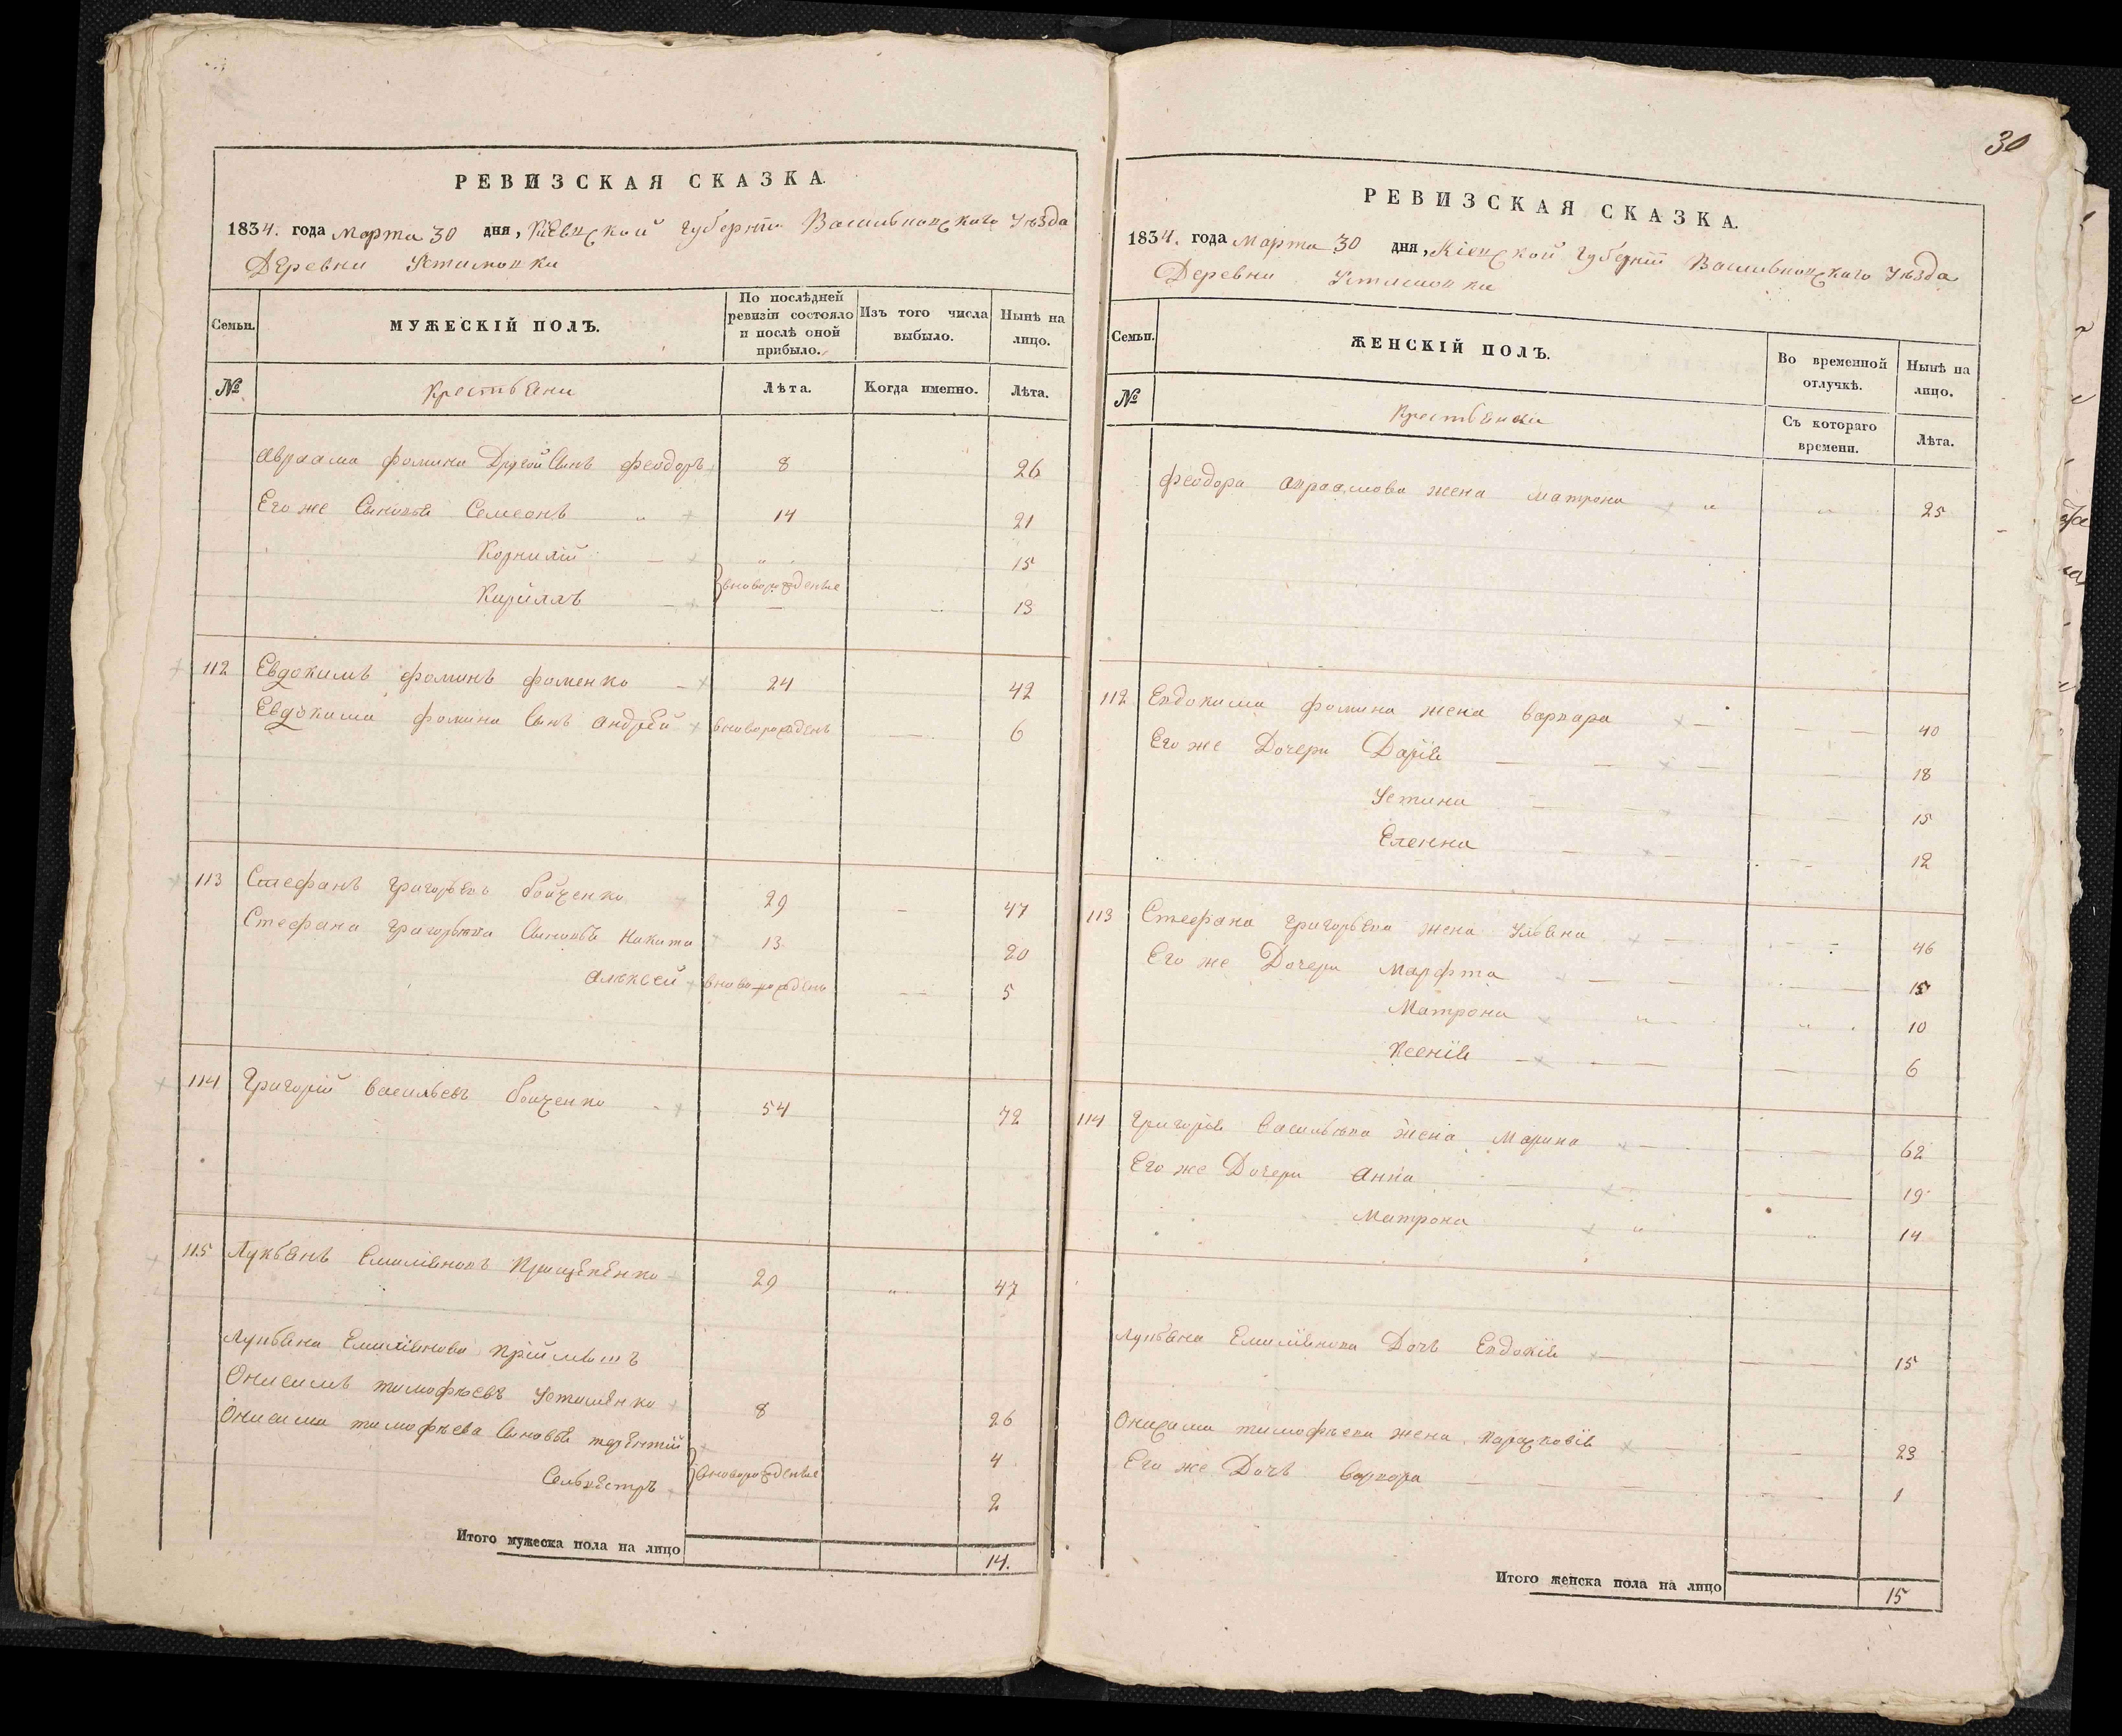 РЕВИЗСКАЯ СКАЗКА.
1834. года марта 30 дня, Кіевской губерніи Васильковскаго уѣзда
Деревни Устимовки
Семьи.
МУЖЕСКІЙ ПОЛЪ.
По послѣдней ревизіи состояло и послѣ оной прибыло.
Изъ того числа выбыло.
Нынѣ на лицо.
№
Крестьяни
Лѣта.
Когда именно.
Лѣта.
Авраама фомина Другой Сынъ феодоръ 8 26
Его же Сыновья Семеонъ " 14 21
Корнилій " " 15
вноворожденые
Кирилъ 13
112 Евдокимъ фоминъ фоменко 24 42
Евдокима фомина Сынъ андрей вноворожденъ 6
113 Стефанъ григорьевъ бойченко 29 47
Стефана григорьева Сыновья Никита 13 20
алексей вноворожденъ 5
114 Григорій васильевъ бойченко 54 72
115 Лукьянъ Емиліяновъ Прищепенко 29 " 47
Лукьяна Емиліянова пріймышъ
Онисимъ тимофѣевъ Устименко 8 26
Онисима тимофѣева Сыновья терентій 4
вноворожденые
Сельвестръ 2
Итого мужеска пола на лицо 14.
30
РЕВИЗСКАЯ СКАЗКА.
1834. года марта 30 дня, Кіевской губерніи Васильковскаго уѣзда
Деревни Устимовки
Семьи.
ЖЕНСКІЙ ПОЛЪ.
Во временной отлучкѣ.
Нынѣ на лицо.
№
Крестьянки
Съ котораго времени.
Лѣта.
феодора авраамова жена матрона " " 25
112 Евдокима фомина жена варвара 40
Его же Дочери Дарія 18
Устина 15
Еленна 12
113 Стефана григорьева жена Ульяна 46
Его же Дочери марфта 15
Матрона " " 10
Ксенія 6
114 Григорія васильева жена Марина 62
Его же Дочери анна 19
Матрона " " 14
Лукьяна Емиліянова Дочь Евдокія 15
Онисима тимофѣева жена парасковія 23
Его же Дочь варвара 1
Итого женска пола на лицо 15